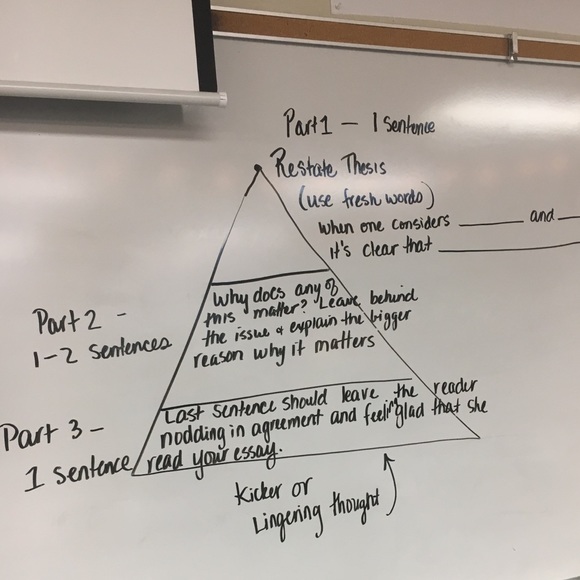 Part 1 - 1 Sentence
Restate Thesis
(use fresh words)
When one considers ______ and __
it's clear that ______________
Part 2 -
1-2 Sentences
Why does any of
this matter? Leave behind
the issue & explain the bigger
reason why it matters
Part 3 -
1 Sentence
Last Sentence should leave the reader
nodding in agreement and feeling glad that she
read your essay.
Kicker or
Lingering thought